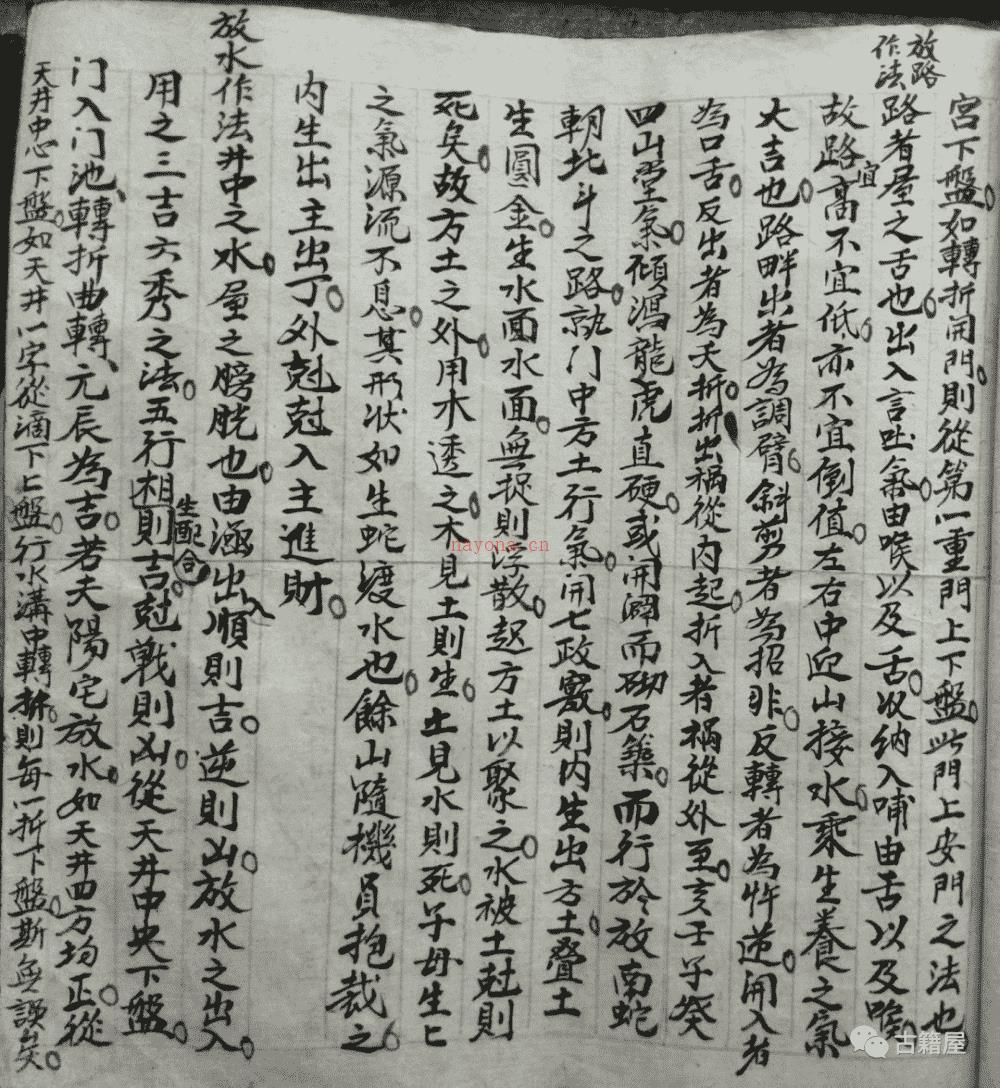 宫下盤如轉折開門則從第一重門上下盤此門上安門之法也
放路作法
路者屋之舌也出入言吐氣由喉以及舌以納入哺由舌以及喉
故路宜高不宜低亦不宜倒值左右中迎山接水乘生養之氣
大吉也路畔出者為調臂斜剪者為招非反轉者為忤逆開入者
為口舌反出者為夭折折出禍從內起折入者禍從外至亥壬子癸
四山堂氣傾瀉龍虎直硬或開闢而砌石築而行於放南蛇
朝北斗之路孰门中方土行氣開七政竅則内生出方土叠土
生圓金生水面水面無捉則浮散起方土以聚之水被土尅則
死矣故方土之外用水透之木見土則生土見水則死子母生七
之氣源流不息其形状如生蛇渡水也餘山隨機員抱裁之
内生出主出丁外尅尅入主進財
放水作法井中之水屋之膀胱也由涵出入順則吉逆則凶放水之出入
用之三吉六秀之法五行相生配合則吉尅戰則凶從天井中央下盤
门入门池轉折曲轉元辰為吉若夫陽宅放水如天井四方均正從
天井中心下盤如天井一字從滴下上盤行水溝中轉折則每一折下盤斯無誤矣
nayona.cn
古籍屋